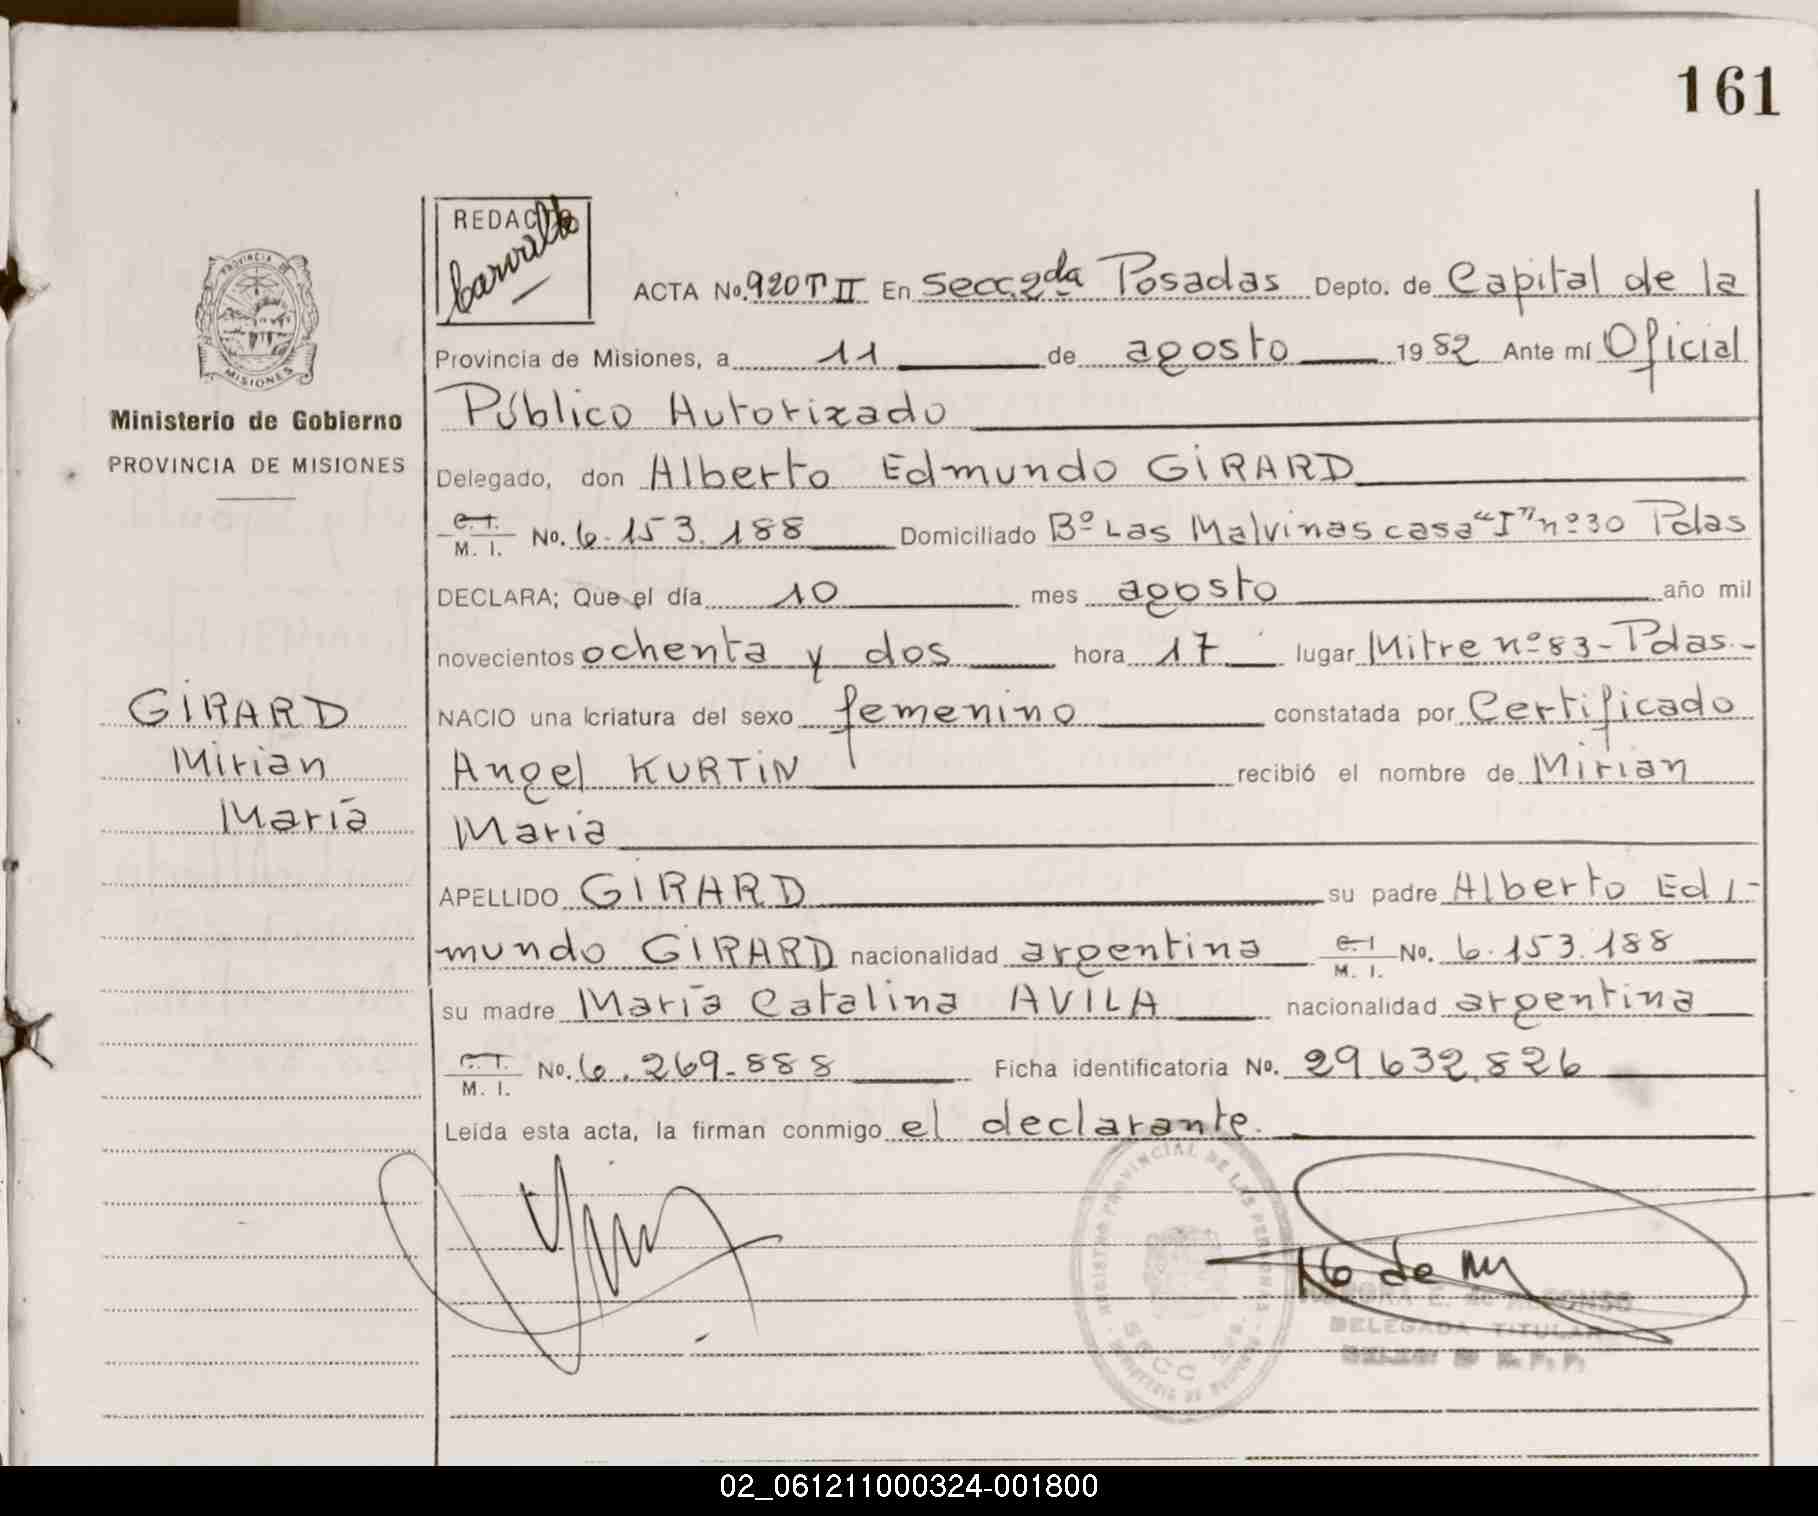 161
REDACTO
PROVINCIA DE
MISIONES
Ministerio de Gobierno
PROVINCIA DE MISIONES
GIRARD
Mirian
María
ACTA No. 920 T II En Secc. 2da Posadas Depto. de Capital de la
Provincia de Misiones, a 11 de agosto 1982 Ante mí Oficial
Público Autorizado
Delegado, don Alberto Edmundo GIRARD
C. I. M. I. No. 6.153.188 Domiciliado Bº Las Malvinas casa "I" nº 30 Pdas
DECLARA; Que el día 10 mes agosto año mil
novecientos ochenta y dos hora 17 lugar Mitre nº 83 - Pdas.-
NACIO una criatura del sexo femenino constatada por Certificado
Angel KURTIN recibió el nombre de Mirian
María
APELLIDO GIRARD su padre Alberto Ed/-
mundo GIRARD nacionalidad argentina C. I M. I. No. 6.153.188
su madre María Catalina AVILA nacionalidad argentina
C. I. M. I. No. 6.269.888 Ficha identificatoria No. 29.632.826
Leída esta acta, la firman conmigo el declarante.
REGISTRO PROVINCIAL DE LAS PERSONAS
SECC
DELEGADA TITULAR
02_061211000324-001800